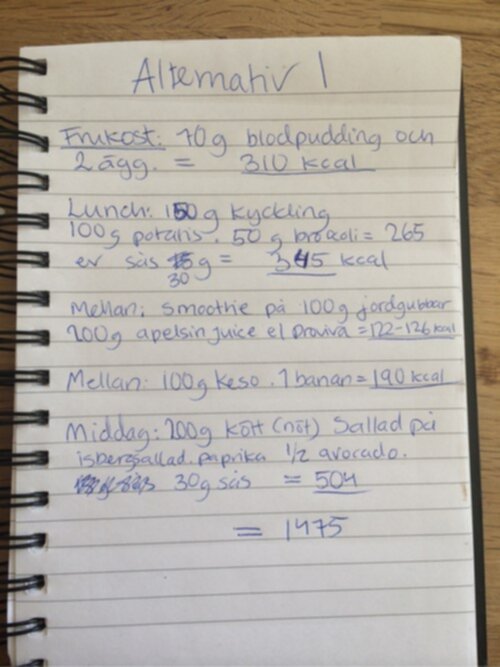 Alternativ 1
Frukost: 70g blodpudding och
2 ägg. = 310 kcal
Lunch: 150g kyckling
100g potatis. 50g brocoli = 265
ev sås g = 345 kcal
30
Mellan: smoothie på 100g jordgubbar
200g apelsinjuice el proviva = 122-126 kcal
Mellan: 100g keso. 1 banan = 190 kcal
Middag: 200g kött (nöt) Sallad på
isbergsallad. paprika 1/2 avocado.
30g sås = 504
= 1475